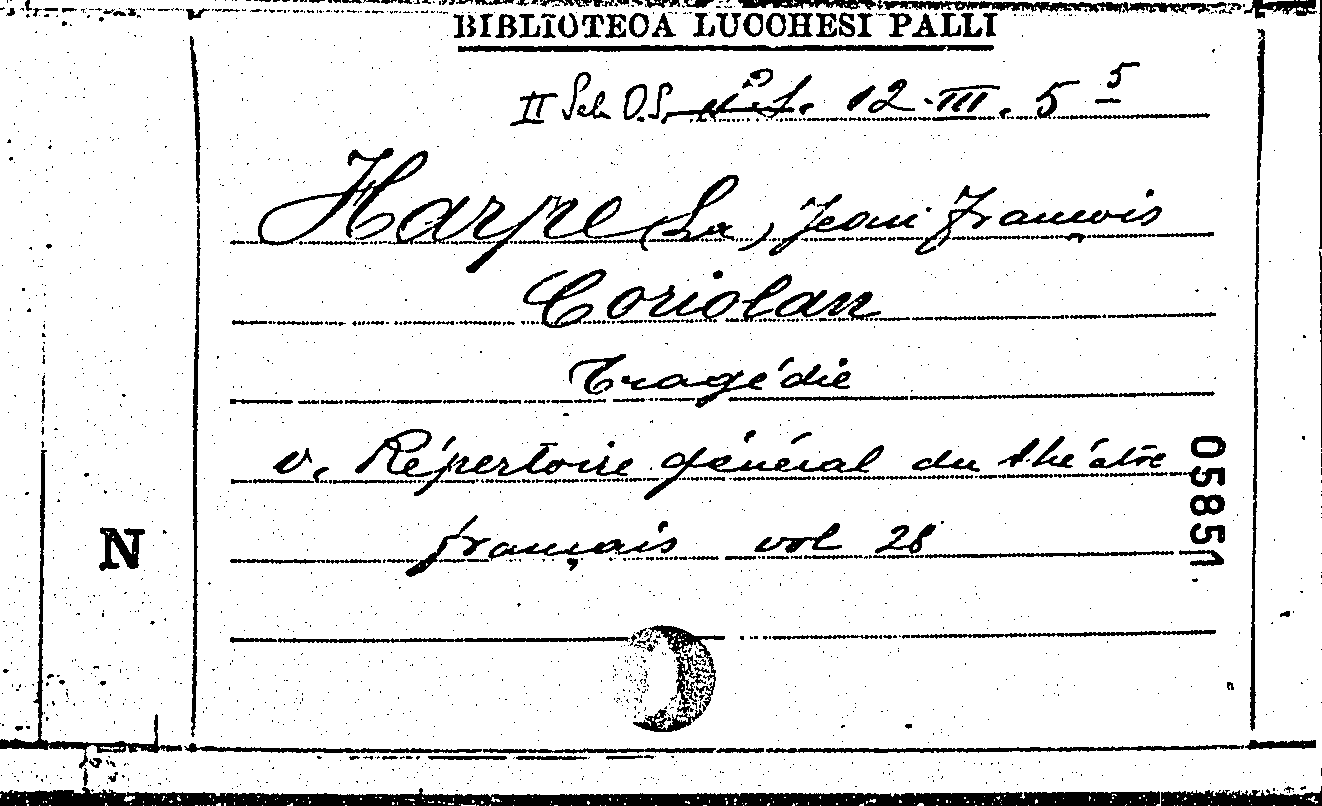 BIBLIOTECA LUCCHESI PALLI
II Sch O.S. 12.III.5 5
Harpe (La) Jean François
Coriolan
Tragédie
v. Répertoire général du théâtre
français vol 28
N
05851